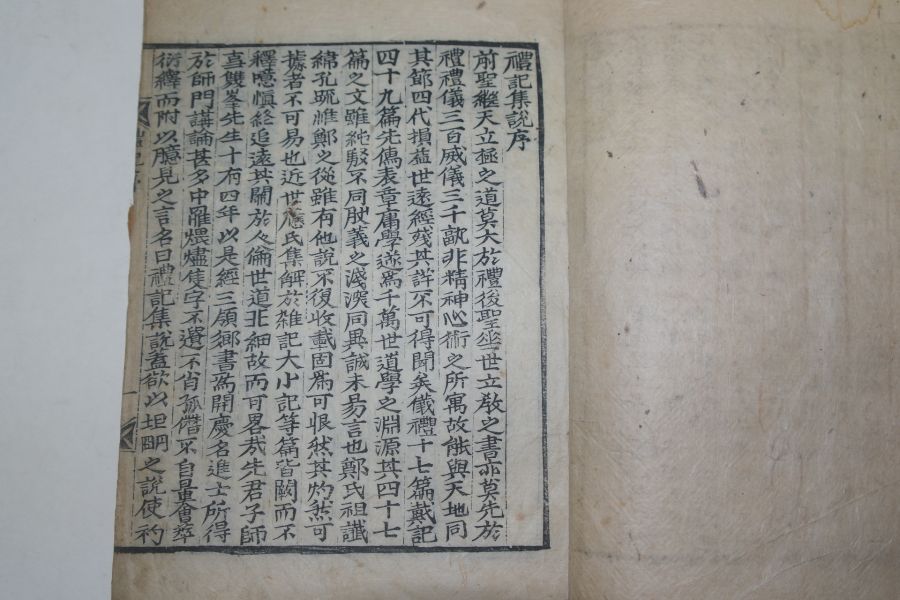 禮記集說序
前聖繼天立極之道莫大於禮後聖垂世立敎之書亦莫先於
禮禮儀三百威儀三千歟非精神心術之所寓故能與天地同
其節四代損益世遠經殘其詳不可得聞矣儀禮十七篇戴記
四十九篇先儒表章庸學遂爲千萬世道學之淵源其四十七
篇之文雖純駁不同然義之淺深同異誠未易言也鄭氏祖讖
緯孔疏惟鄭之從雖有他說不復收載固爲可恨然其灼然可
據者不可易也近世應氏集解於雜記大小記等篇皆闕而不
釋噫愼終追遠其關於人倫世道非細故而可畧哉先君子師
事雙峯先生十有四年以是經三領鄕書爲開慶名進士所得
於師門講論甚多中罹煨燼隻字不遺不肖孤僭不自量會萃
衍繹而附以臆見之言名曰禮記集說盖欲以坦明之說使初